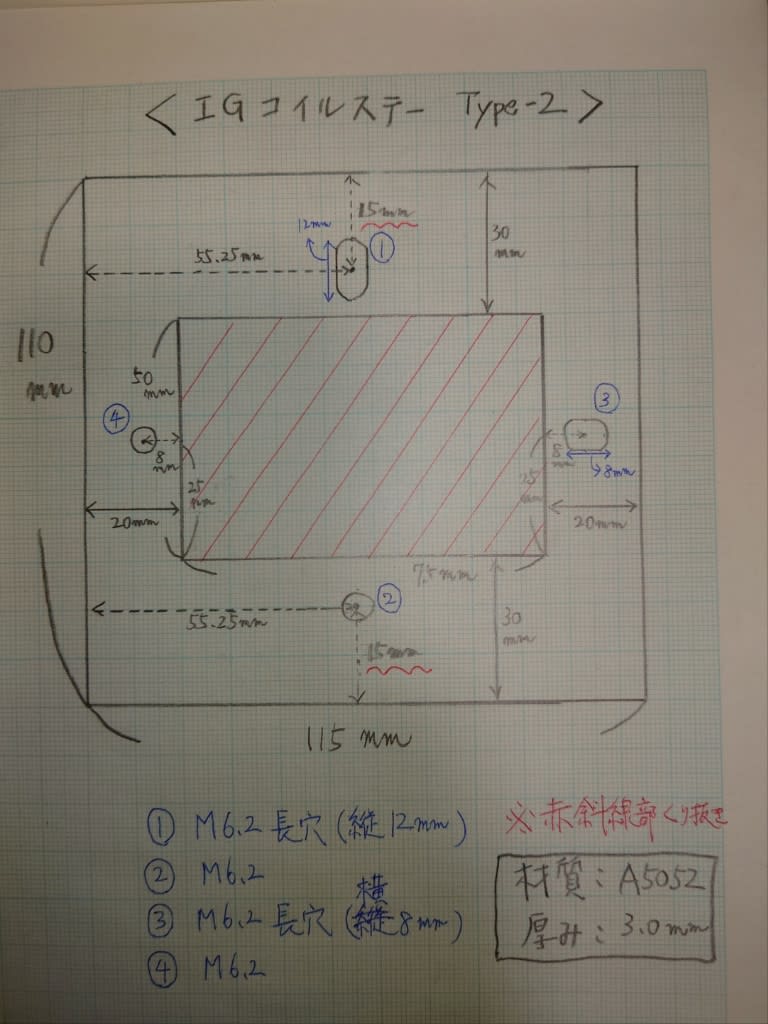 < IGコイルステー Type-2 >
15mm
12mm
①
30
mm
55.25mm
110
mm
50
mm
④
③
8
mm
8
mm
8mm
25
mm
25
mm
20mm
20mm
75mm
②
55.25mm
30
mm
15mm
115mm
① M6.2 長穴(縦12mm)
② M6.2
横
③ M6.2 長穴(縦8mm)
④ M6.2
※赤斜線部くり抜き
材質: A5052
厚み: 3.0mm